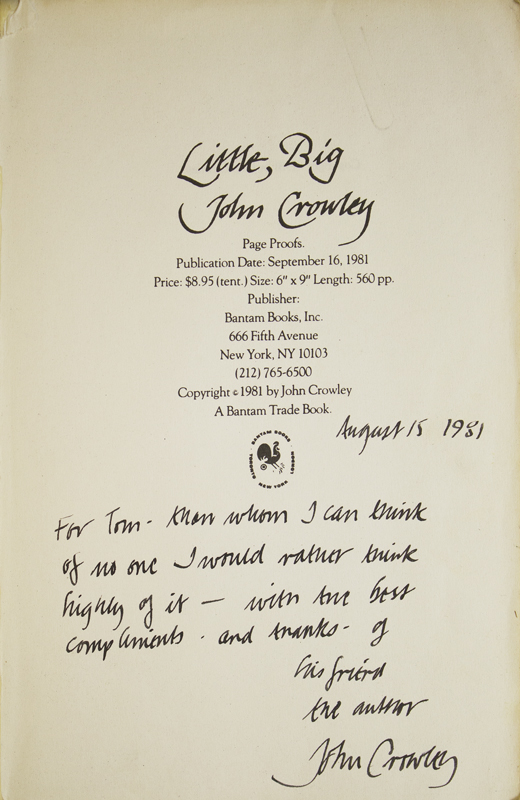 Little, Big
John Crowley
Page Proofs.
Publication Date: September 16, 1981
Price: $8.95 (tent.) Size: 6" x 9" Length: 560 pp.
Publisher:
Bantam Books, Inc.
666 Fifth Avenue
New York, NY 10103
(212) 765-6500
Copyright © 1981 by John Crowley
A Bantam Trade Book.
August 15 1981
BANTAM BOOKS
TORONTO · NEW YORK · LONDON
For Tom - than whom I can think
of no one I would rather think
highly of it — with the best
compliments - and thanks - of
his friend
the author
John Crowley